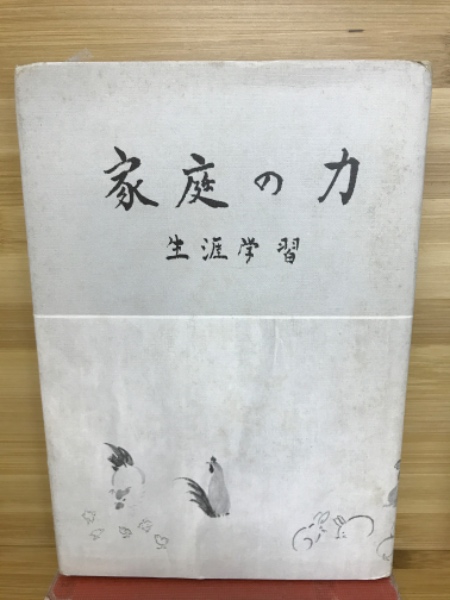 家庭の力
生涯学習